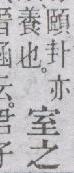 頤卦亦室之
養也。
云。君子